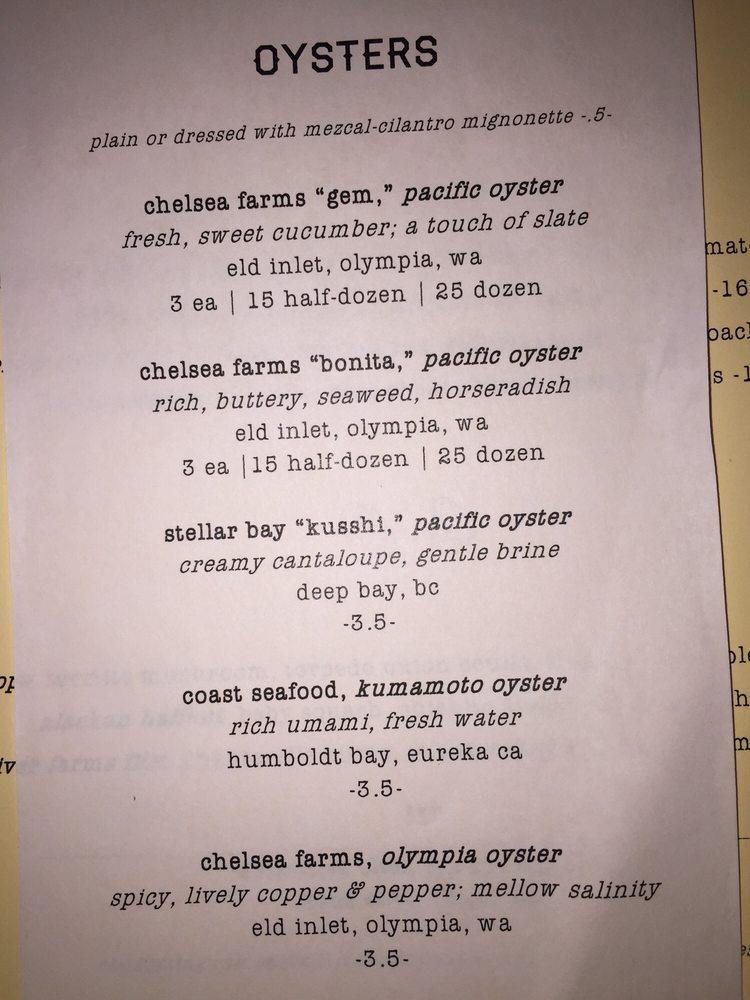 OYSTERS
plain or dressed with mezcal-cilantro mignonette -.5-
chelsea farms “gem,” pacific oyster
fresh, sweet cucumber; a touch of slate
eld inlet, olympia, wa
3 ea | 15 half-dozen | 25 dozen
chelsea farms “bonita,” pacific oyster
rich, buttery, seaweed, horseradish
eld inlet, olympia, wa
3 ea |15 half-dozen | 25 dozen
stellar bay “kusshi,” pacific oyster
creamy cantaloupe, gentle brine
deep bay, bc
-3.5-
coast seafood, kumamoto oyster
rich umami, fresh water
humboldt bay, eureka ca
-3.5-
chelsea farms, olympia oyster
spicy, lively copper & pepper; mellow salinity
eld inlet, olympia, wa
-3.5-
-16